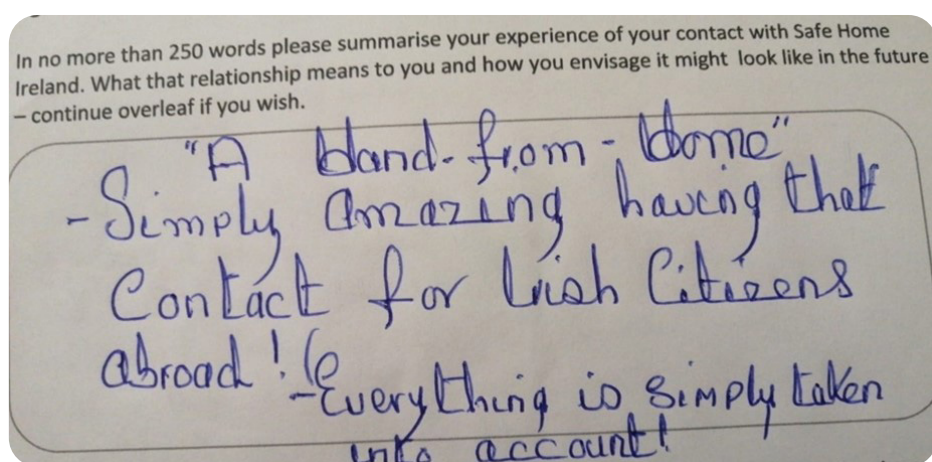 In no more than 250 words please summarise your experience of your contact with Safe Home
Ireland. What that relationship means to you and how you envisage it might look like in the future
– continue overleaf if you wish.
"A Hand-from-Home"
- Simply Amazing having that
Contact for Irish Citizens
abroad!
- Everything is simply taken
into account!